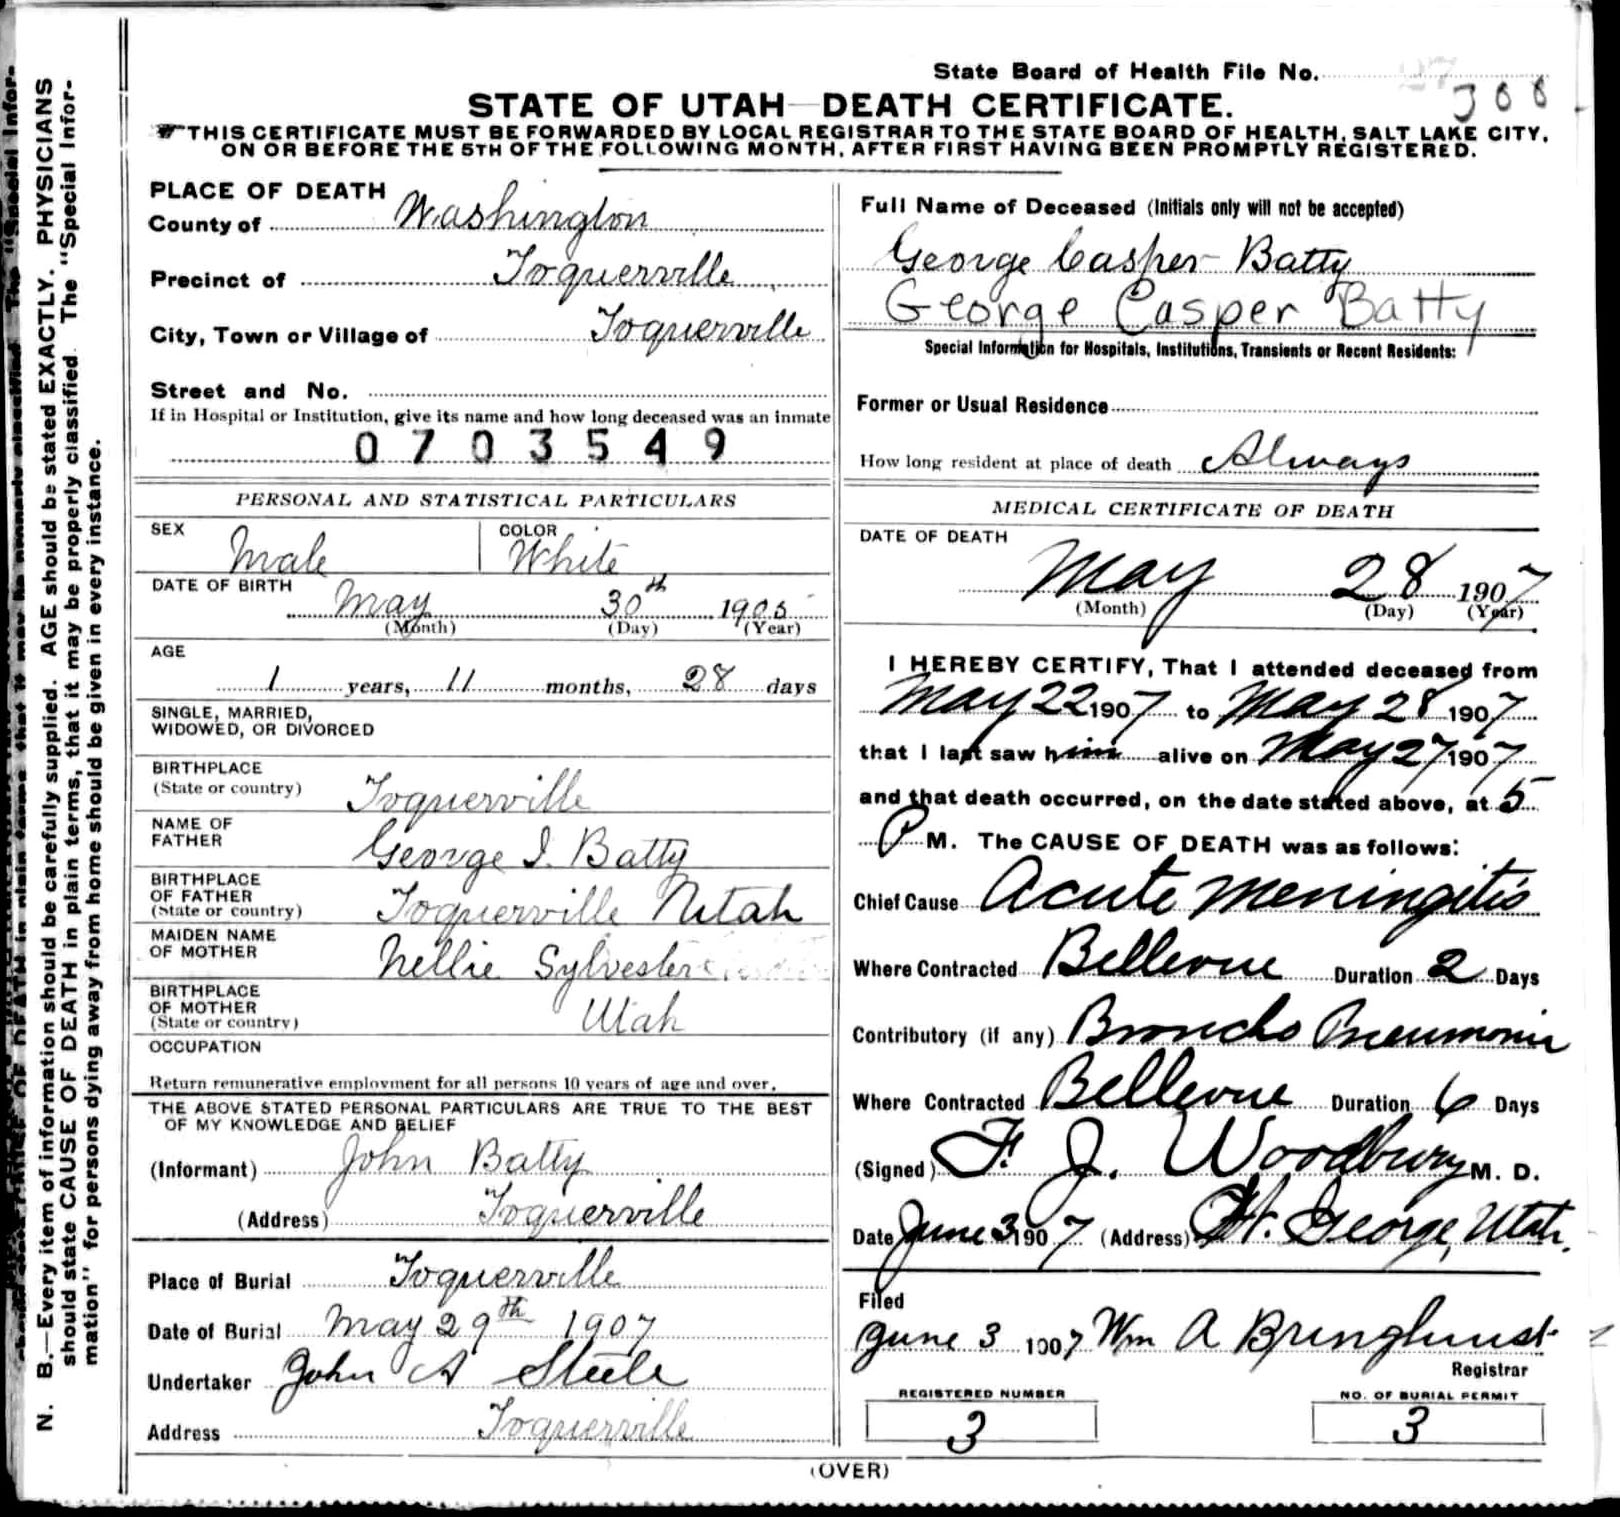 State Board of Health File No. 27
388
STATE OF UTAH—DEATH CERTIFICATE.
THIS CERTIFICATE MUST BE FORWARDED BY LOCAL REGISTRAR TO THE STATE BOARD OF HEALTH, SALT LAKE CITY,
ON OR BEFORE THE 5TH OF THE FOLLOWING MONTH, AFTER FIRST HAVING BEEN PROMPTLY REGISTERED.
N. B.—Every item of information should be carefully supplied. AGE should be stated EXACTLY. PHYSICIANS
should state CAUSE OF DEATH in plain terms, that it may be properly classified. The "Special Infor-
mation" for persons dying away from home should be given in every instance.
PLACE OF DEATH
County of Washington
Precinct of Toquerville
City, Town or Village of Toquerville
Street and No.
If in Hospital or Institution, give its name and how long deceased was an inmate
0703549
PERSONAL AND STATISTICAL PARTICULARS
SEX Male COLOR White
DATE OF BIRTH
May 30th 1905
(Month) (Day) (Year)
AGE
1 years, 11 months, 28 days
SINGLE, MARRIED,
WIDOWED, OR DIVORCED
BIRTHPLACE
(State or country) Toquerville
NAME OF
FATHER George I. Batty
BIRTHPLACE
OF FATHER
(State or country) Toquerville Utah
MAIDEN NAME
OF MOTHER Nellie Sylvester
BIRTHPLACE
OF MOTHER
(State or country) Utah
OCCUPATION
Return remunerative employment for all persons 10 years of age and over.
THE ABOVE STATED PERSONAL PARTICULARS ARE TRUE TO THE BEST
OF MY KNOWLEDGE AND BELIEF
(Informant) John Batty
(Address) Toquerville
Place of Burial Toquerville
Date of Burial May 29th 1907
Undertaker John A Steele
Address Toquerville
Full Name of Deceased (Initials only will not be accepted)
George Casper Batty
George Casper Batty
Special Information for Hospitals, Institutions, Transients or Recent Residents:
Former or Usual Residence
How long resident at place of death Always
MEDICAL CERTIFICATE OF DEATH
DATE OF DEATH
May 28 1907
(Month) (Day) (Year)
I HEREBY CERTIFY, That I attended deceased from
May 22 1907 to May 28 1907
that I last saw him alive on May 27 1907
and that death occurred, on the date stated above, at 5
P M. The CAUSE OF DEATH was as follows:
Chief Cause Acute Meningitis
Where Contracted Bellevue Duration 2 Days
Contributory (if any) Broncho Pneumonia
Where Contracted Bellevue Duration 6 Days
(Signed) F. J. Woodbury M. D.
Date June 3 1907 (Address) St. George, Utah.
Filed
June 3 1907 Wm A Bringhurst
Registrar
REGISTERED NUMBER
3
NO. OF BURIAL PERMIT
3
(OVER)